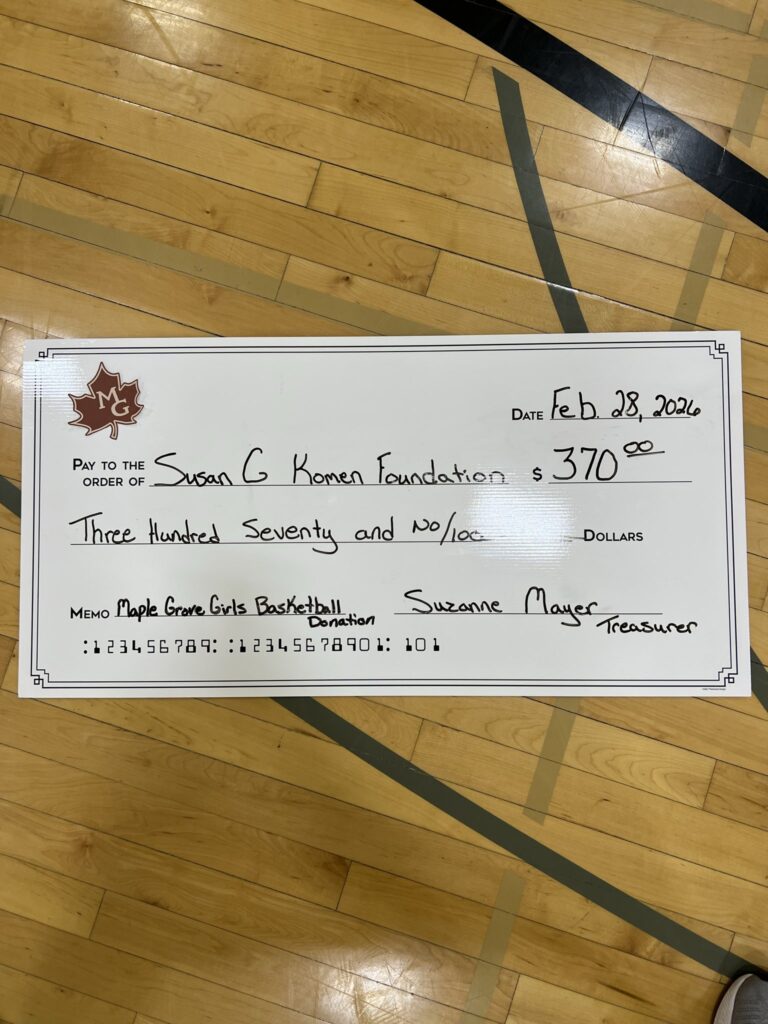 MG
DATE Feb. 28, 2026
PAY TO THE
ORDER OF Susan G Komen Foundation $ 370 00
Three Hundred Seventy and No/100 DOLLARS
MEMO Maple Grove Girls Basketball Suzanne Mayer
Donation Treasurer
:123456789: :12345678901: 101